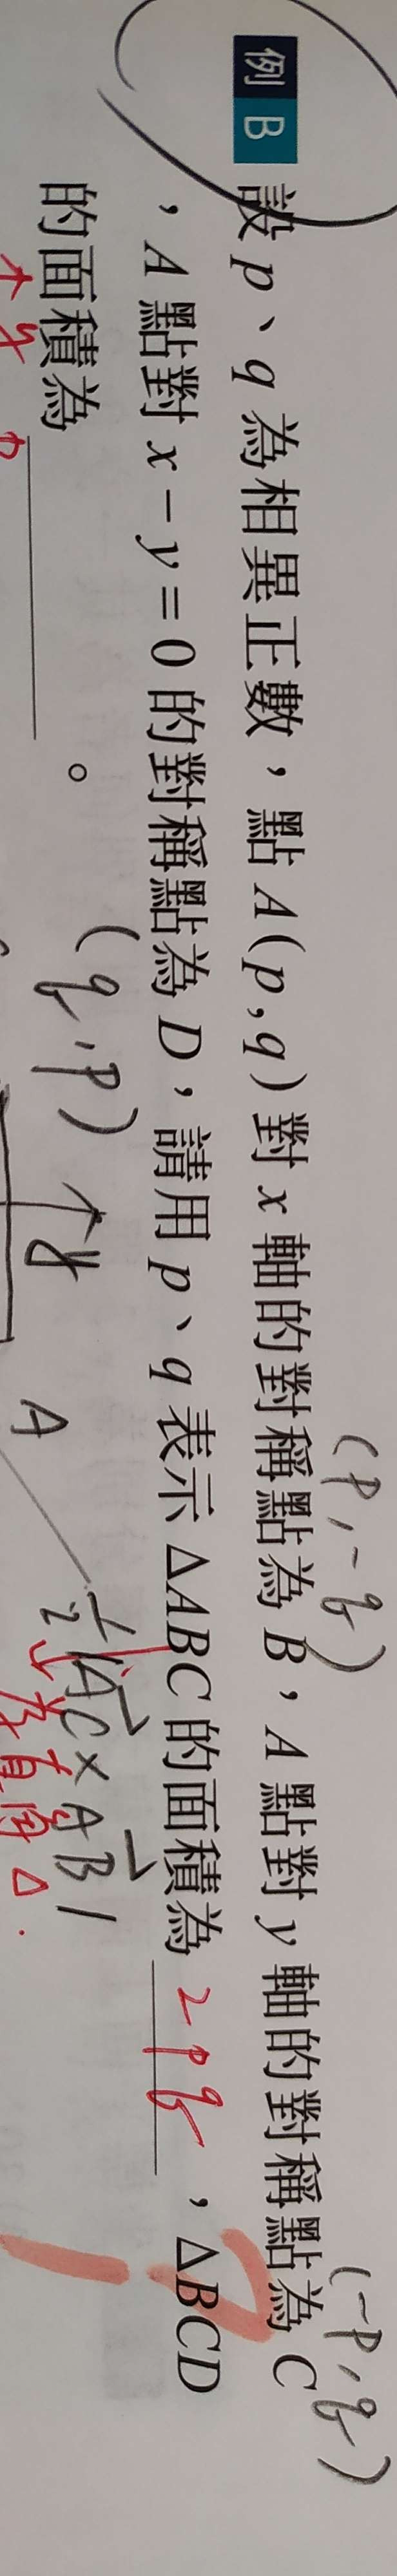 (p, -q) (-p, q)
例 B 設 p、q 為相異正數，點 A(p, q) 對 x 軸的對稱點為 B，A 點對 y 軸的對稱點為 C
，A 點對 x − y = 0 的對稱點為 D，請用 p、q 表示 △ABC 的面積為 2pq ，△BCD
的面積為 ________ 。 (q, p) ↑y A 1/2|AC × AB|